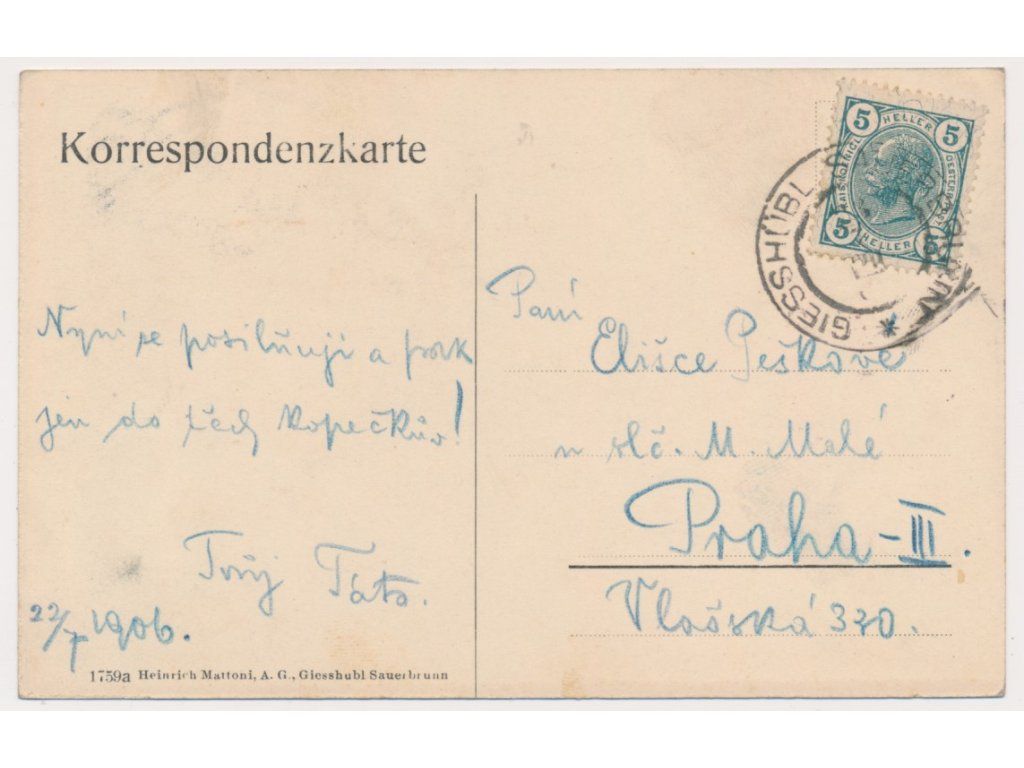 Korrespondenzkarte
5 HELLER 5
5 HELLER 5
GIESSHÜBL
Nyní se posilňuji a pak
jen do těch kopečkův!
Tvůj Táta.
22/7 1906.
1759a Heinrich Mattoni, A. G., Giesshubl Sauerbrunn
Paní
Elišce Peškové
u slč. M. Malé
Praha-III.
Vlašská 330.